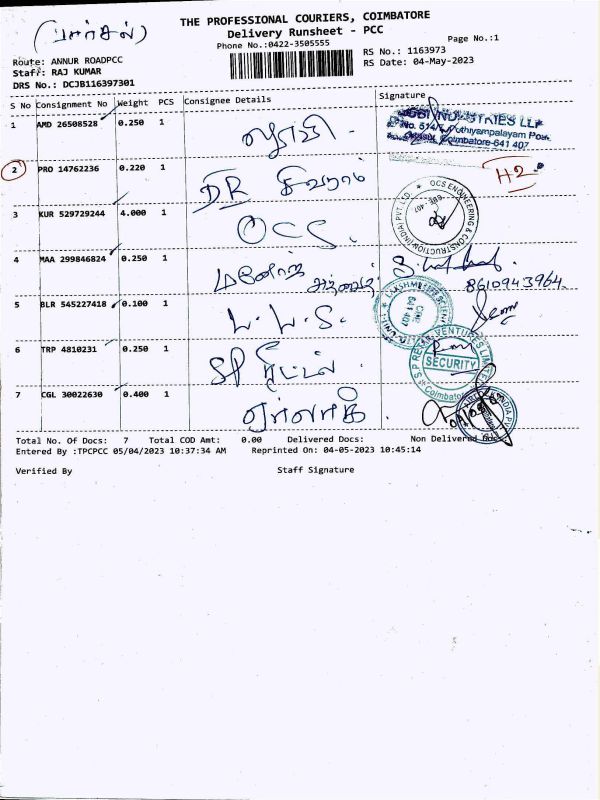 THE PROFESSIONAL COURIERS, COIMBATORE
Delivery Runsheet - PCC
(பார்சல்)
Phone No.:0422-3505555
Page No.:1
Route: ANNUR ROADPCC
RS No.: 1163973
Staff: RAJ KUMAR
RS Date: 04-May-2023
DRS No.: DCJB116397301
S No Consignment No Weight PCS Consignee Details Signature
1 AMD 26508528 0.250 1
No. 514/ Pothiyampalayam Post,
Coimbatore-641 407
2 PRO 14762236 0.220 1 DR சிவராம் H2
3 KUR 529729244 4.000 1 OCS
OCS ENGINEERING & CONSTRUCTION (INDIA) PVT. LTD.
4 MAA 299846824 0.250 1 மனோஜ்
8610943964
5 BLR 545227418 0.100 1 L.W.S.
641 407
6 TRP 4810231 0.250 1 SP ரீட்டல்
S P RETAIL VENTURES LIMITED
SECURITY
Coimbatore
7 CGL 30022630 0.400 1
Total No. Of Docs: 7 Total COD Amt: 0.00 Delivered Docs: Non Delivered Docs:
Entered By :TPCPCC 05/04/2023 10:37:34 AM Reprinted On: 04-05-2023 10:45:14
Verified By Staff Signature